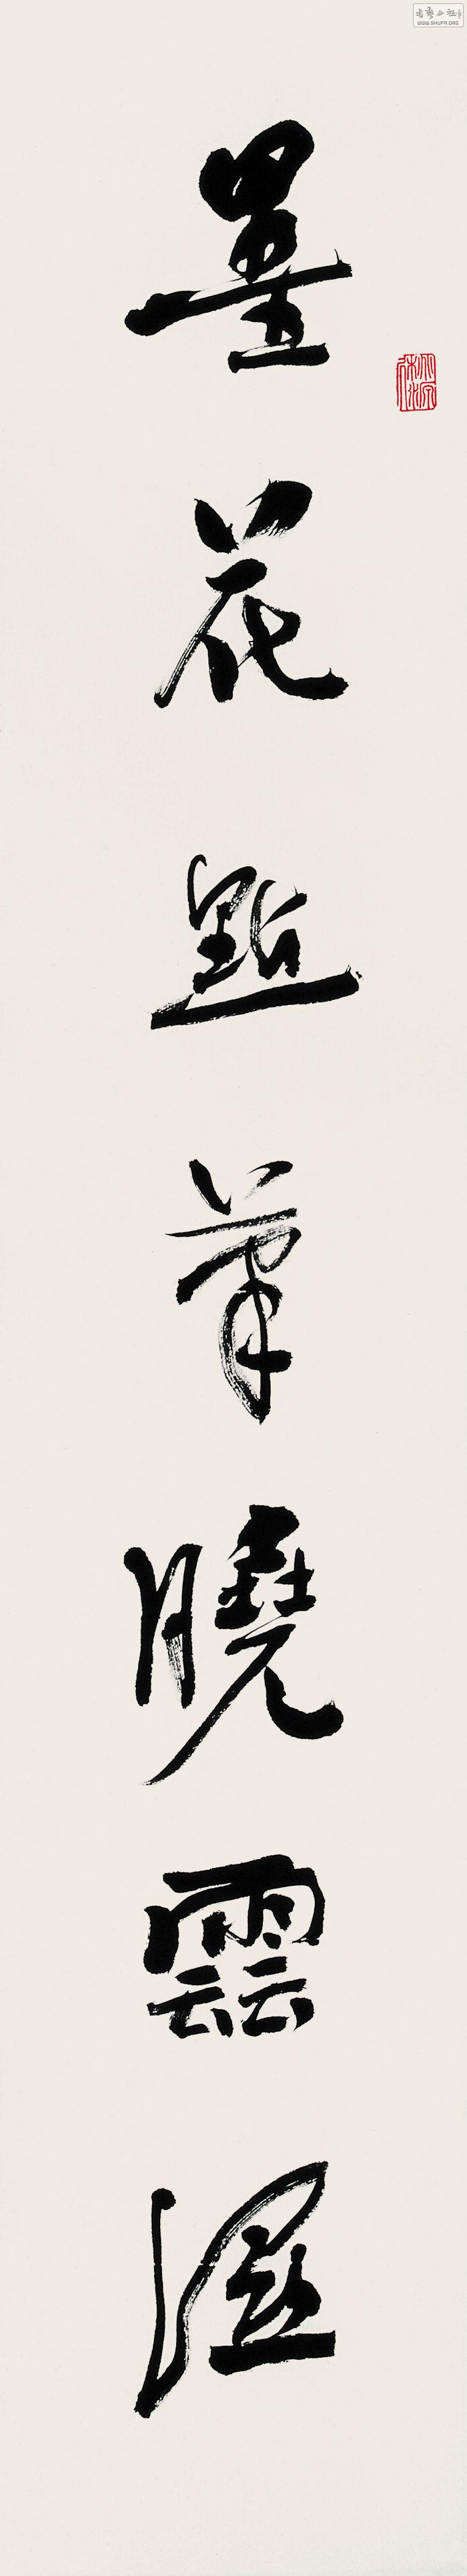 墨花點筆曉雲濕
WWW.SHUFA.ORG